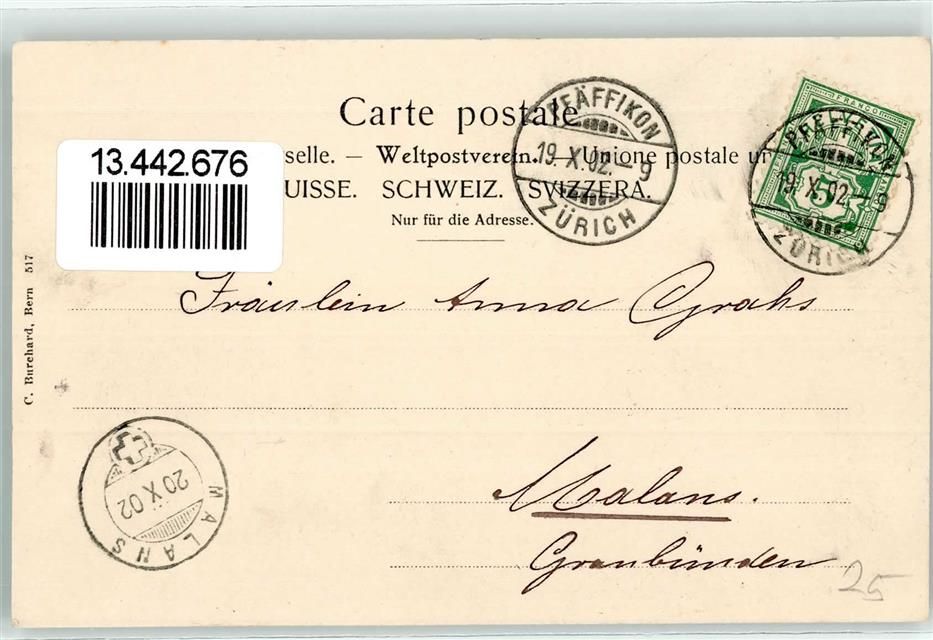 Carte postale
13.442.676
selle. — Weltpostverein. — Unione postale un
UISSE. SCHWEIZ. SVIZZERA.
Nur für die Adresse.
PFÄFFIKON
19. X. 02. – 9
ZÜRICH
FRANCO
PFÄFFIKON
19. X. 02. – 9
ZÜRICH
C. Burchard, Bern 517
Fräulein Anna
Malans.
Graubünden
MALANS
20 X 02
25